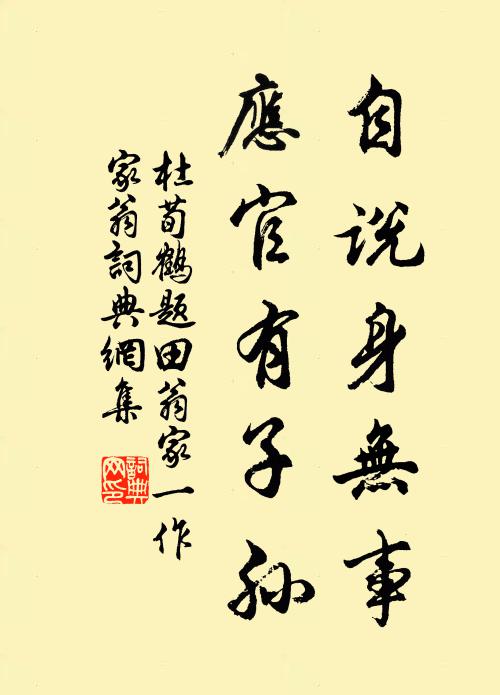 自说身無事
應官有子孙
杜荀鶴题田翁家一作
家翁詞典網集
詞典
网印